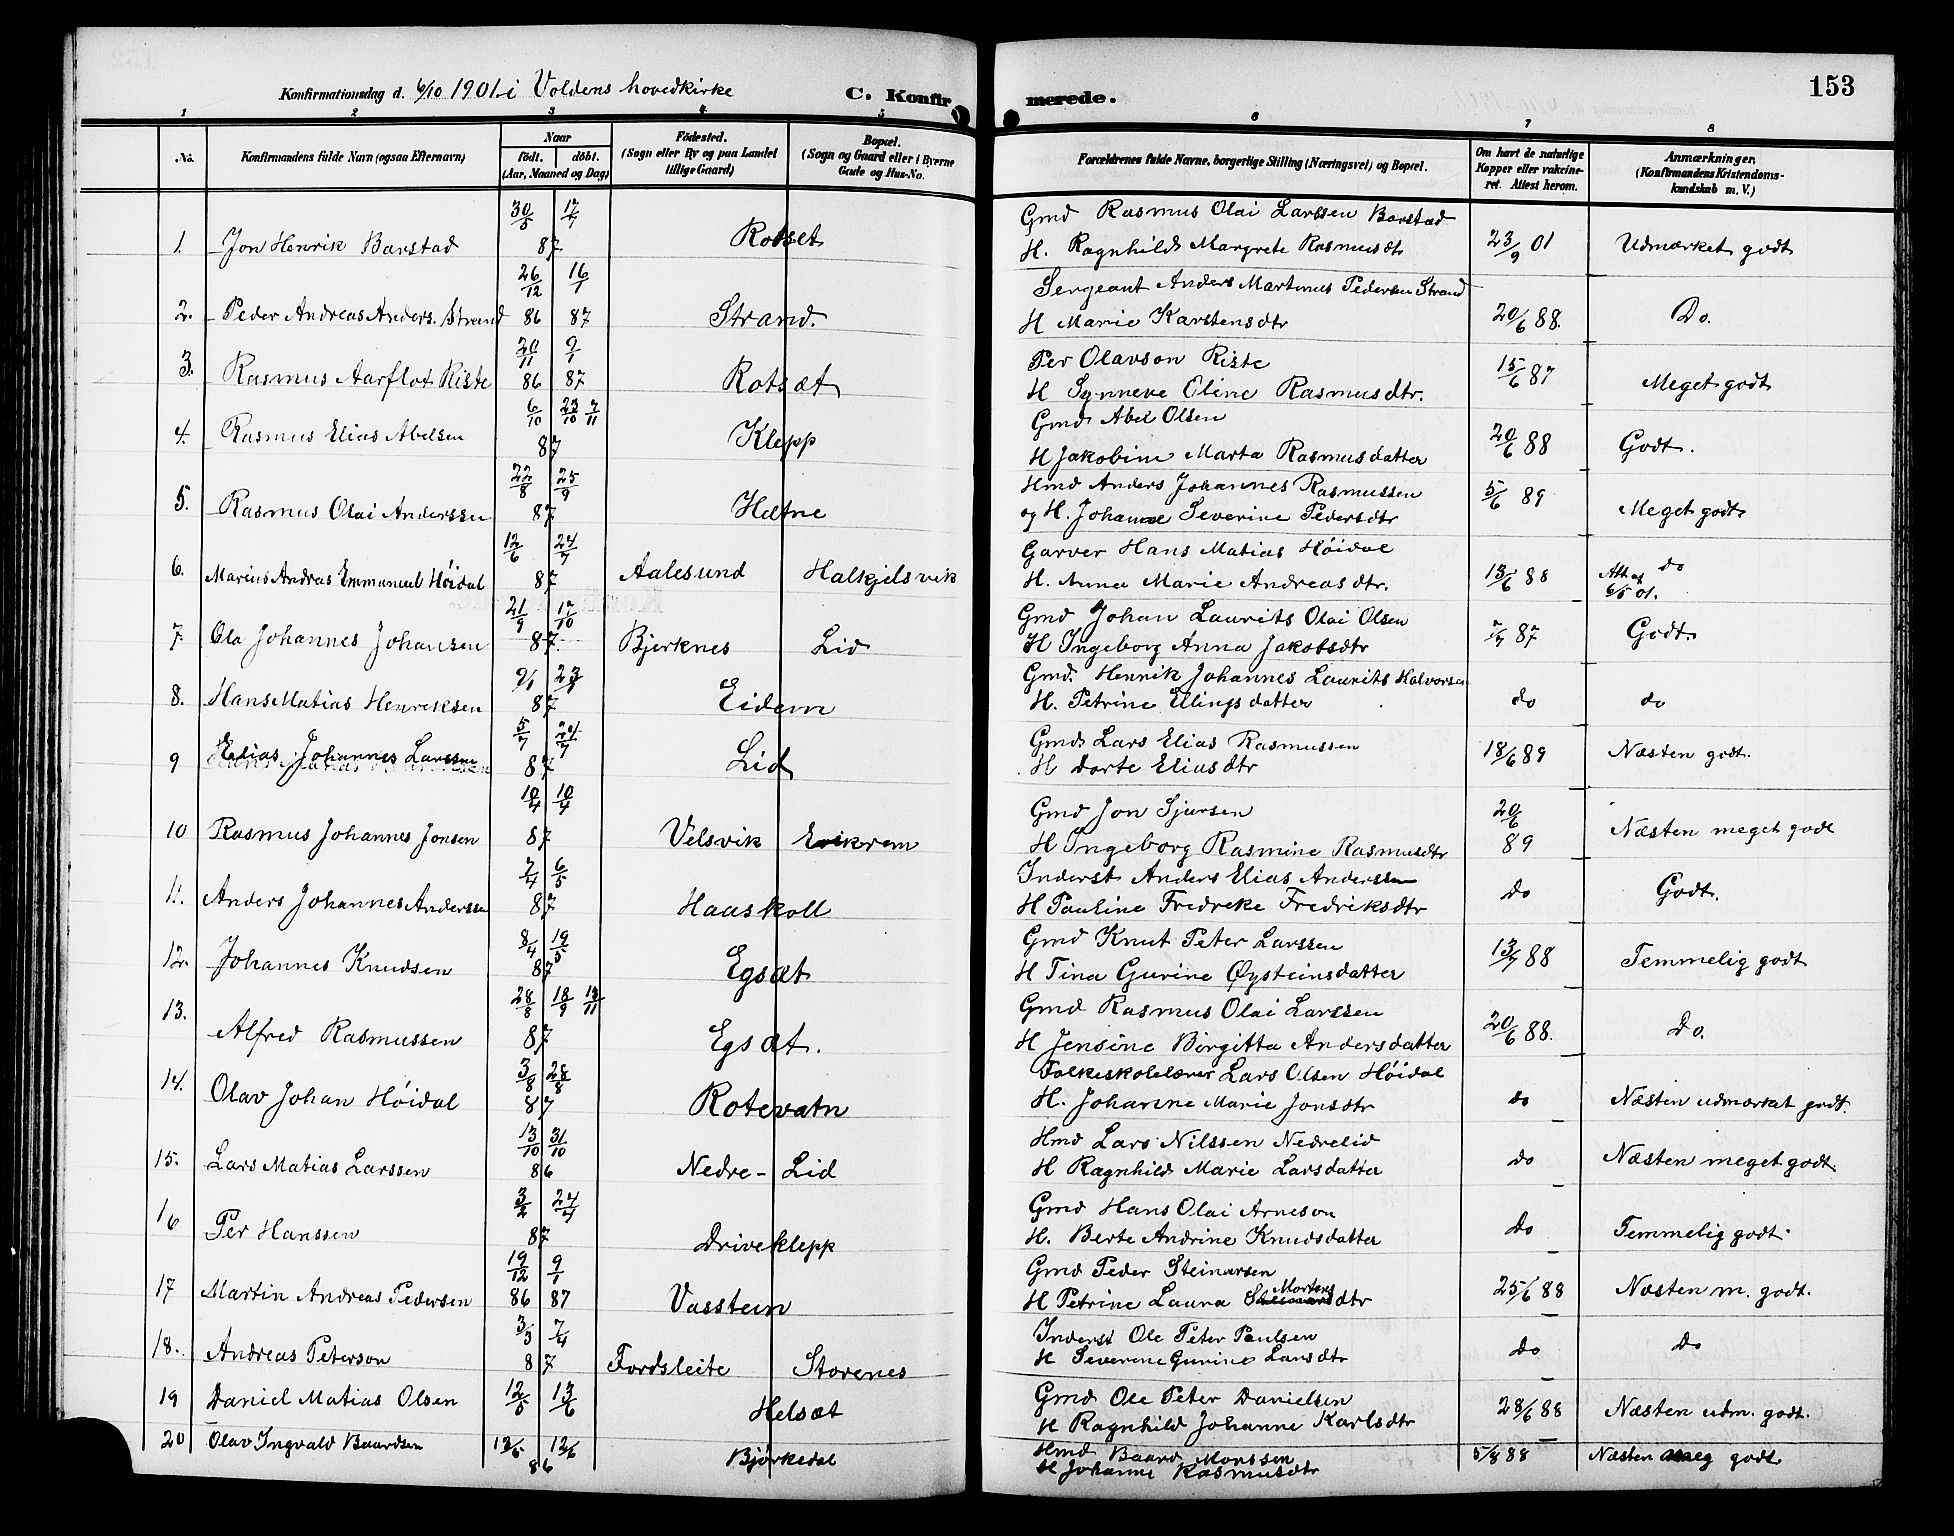 Konfirmationsdag d. 6/10 1901 i Voldens hovedkirke C. Konfirmerede. 153
1 2 3 4 5 6 7 8
No.
Konfirmandens fulde Navn (ogsaa Efternavn)
Naar
født. døbt.
(Aar, Maaned og Dag)
Fødested.
(Sogn eller By og paa Landet
tillige Gaard)
Bopæl.
(Sogn og Gaard eller i Byerne
Gade og Hus-No.
Forældrenes fulde Navne, borgerlige Stilling (Næringsvei) og Bopæl.
Om havt de naturlige
Kopper eller vakcine-
ret. Attest herom.
Anmærkninger.
(Konfirmandens Kristendoms-
kundskab m. V.)
1. Jon Henrik Barstad 30/5 17/7 87 Rotset
Gmd Rasmus Olai Larssen Barstad
H. Ragnhild Margrete Rasmusdtr 23/9 01 Udmærket godt
2. Peder Andreas Anders. Strand 26/12 86 16/1 87 Strand.
Sergeant Anders Martinus Pedersen Strand
H Marie Karstensdtr 20/6 88. Do.
3. Rasmus Aarflot Riste 20/11 86 9/1 87 Rotsæt
Per Olavson Riste
H Synneve Oline Rasmusdtr. 15/6 87 Meget godt
4. Rasmus Elias Abelsen 6/10 23/10 7/11 87 Klepp
Gmd Abel Olsen
H Jakobine Marta Rasmusdatter 20/6 88 Godt.
5. Rasmus Olai Anderssen 22/8 25/9 87 Hætne
Hmd Anders Johannes Rasmussen
og H. Johanne Severine Pedersdtr 5/6 89 Meget godt
6. Marius Andreas Emmanuel Höidal 12/6 24/7 87 Aalesund Halkjelsvik
Garver Hans Matias Höidal
H. Anna Marie Andreasdtr. 13/6 88 do
Att af
6/5 01.
7. Ola Johannes Johansen 21/9 17/10 87 Bjerknes Lid
Gmd Johan Laurits Olai Olsen
H Ingeborg Anna Jakobsdtr 7/7 87 Godt
8. Hans Matias Henriksen 87 Eidem
Gmd. Henrik Johannes Laurits Halvorsen
H. Petrine Ellingsdatter do do
9 Elias Johannes Larssen 5/7 24/7 87 Lid
Gmd Lars Elias Rasmussen
H Dorte Eliasdtr 18/6 89 Næsten godt.
10 Rasmus Johannes Jonsen 10/4 10/4 87 Velsvik Evikrem
Gmd Jon Sjursen
H Ingeborg Rasmine Rasmusdtr 20/6 89 Næsten meget godt
11. Anders Johannes Anderssen 7/4 6/5 87 Haaskoll
Inderst Anders Elias Anderssen
H Pauline Fredreke Fredriksdtr do Godt.
12. Johannes Knudsen 8/4 19/5 87 Egsæt
Gmd Knut Peter Larssen
H Tina Gurine Øysteinsdatter 13/7 88 Temmelig godt
13. Alfred Rasmussen 28/8 18/9 13/11 87 Egsæt.
Gmd Rasmus Olai Larssen
H Jensine Birgitta Andersdatter 20/6 88. Do.
14. Olav Johan Höidal 3/8 28/8 87 Rotevatn
Folkeskolelærer Lars Olsen Höidal
H. Johanne Marie Jonsdtr do Næsten udmærket godt.
15. Lars Matias Larssen 13/10 31/10 86 Nedre-Lid
Hmd Lars Nilssen Nedrelid
H Ragnhild Marie Larsdatter do Næsten meget godt
16 Per Hanssen 3/2 24/4 87 Driveklepp
Gmd Hans Olai Arneson
H. Berte Andrine Knudsdatter do Temmelig godt.
17 Martin Andreas Pedersen 19/12 86 9/1 87 Vasstein
Gmd Peder Steinarsen
H Petrine Laura Mortensdtr 25/6 88 Næsten m. godt.
18. Andreas Peterson 3/3 7/4 87 Fordsleite Storenes
Inderst Ole Peter Paulsen
H Severine Gurine Larsdtr do do
19 Daniel Matias Olsen 12/5 13/6 Helsæt
Gmd Ole Peter Danielsen
H Ragnhild Johanne Karlsdtr 28/6 88 Næsten udm. godt.
20 Olav Ingvald Baardsen 12/6 86 Bjørkedal
Hmd Baard Monssen
H Johanne Rasmusdtr 5/8 88 Næsten meg godt